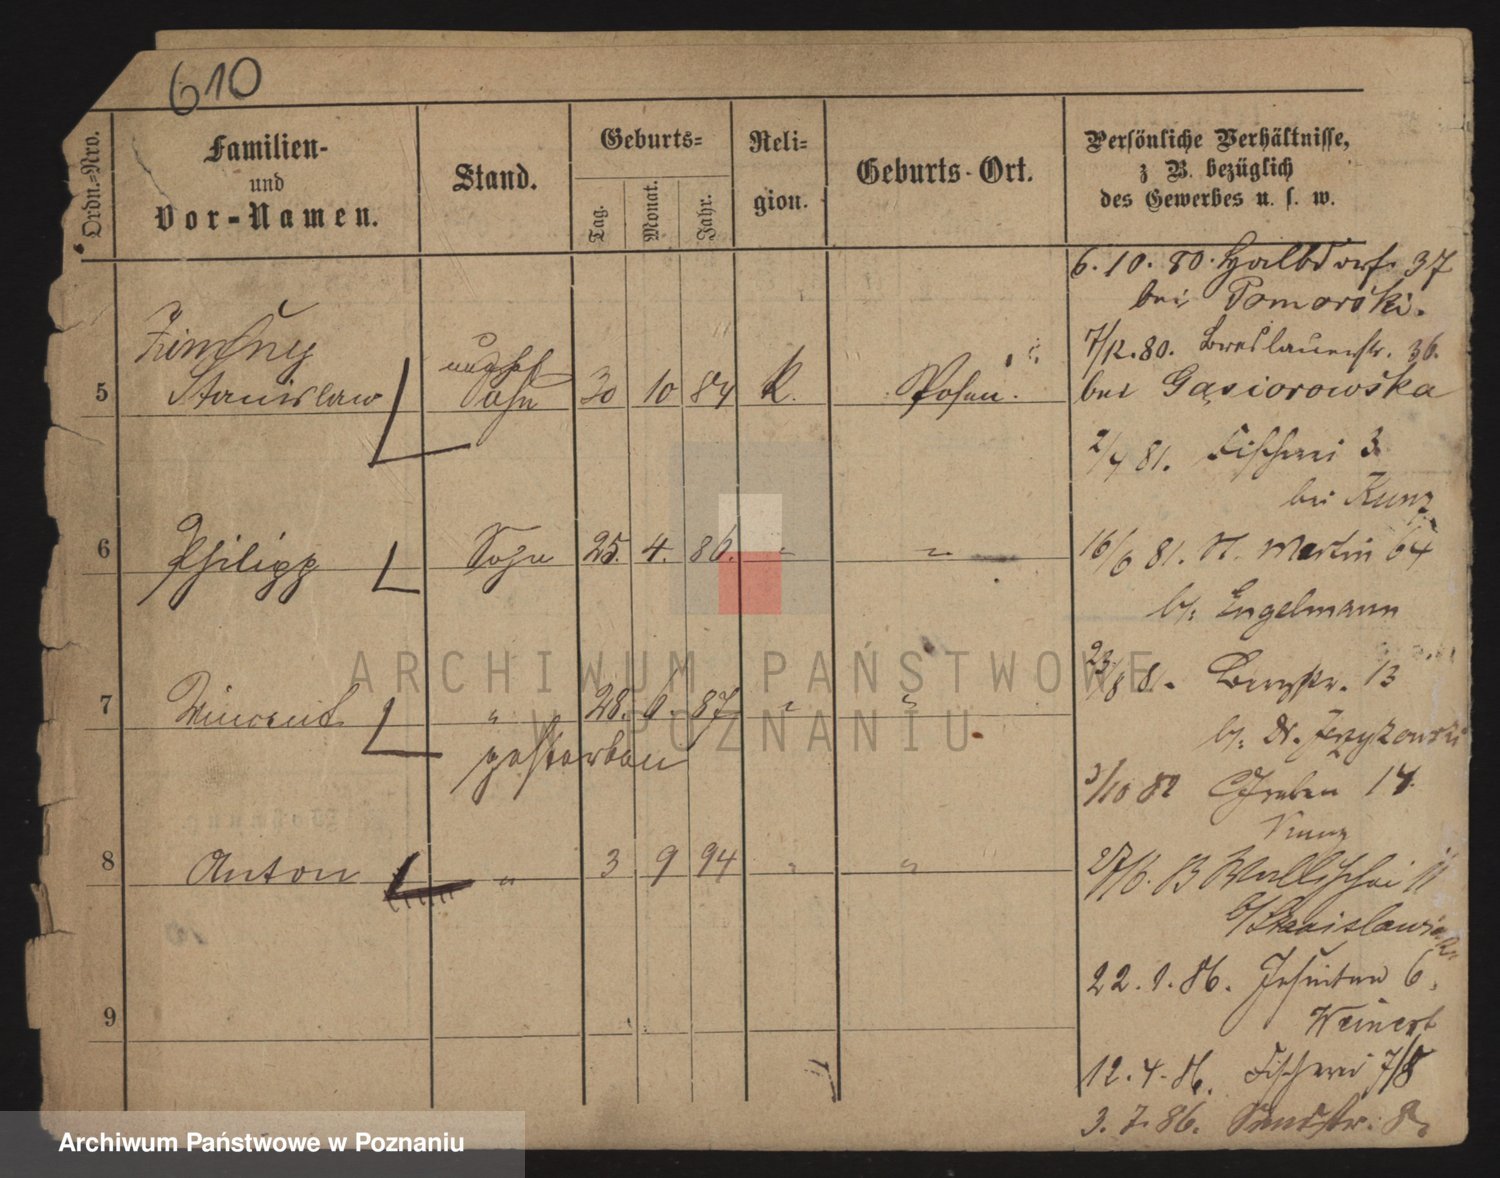 610
Ordn.-Nro.
Familien-
und
Vor-Namen.
Stand.
Geburts-
Tag.
Monat.
Jahr.
Reli-
gion.
Geburts-Ort.
Persönliche Verhältnisse,
z B. bezüglich
des Gewerbes u. s. w.
6. 10. 80. Halbdorf. 37
bei Pomorski.
7/12. 80. Breslauerstr. 36.
bei Gąsiorowska
2/4 81. Fischerei 3
bei Kunz
16/6 81. St. Martin 64
b/. Engelmann
23/8 81. Bergstr. 13
b/. Dr. Jerzykowski
3/10 82 Graben 14.
Kunz
27/6. 83 Wallischei 11
b/
22. 1. 86. Jesuiten 6.
Weinert
12. 4. 86. Fischerei 7/8
3. 7. 86. Sandstr. 8
Zimny
5 Stanislaw
unehel
Sohn 30 10 84 K. Posen.
6 Philipp Sohn 25. 4. 86. " "
7 Vincent " 28. 6. 87 " "
gestorben
8 Anton " 3 9 94 " "
9
ARCHIWUM PAŃSTWOWE
W POZNANIU
Archiwum Państwowe w Poznaniu